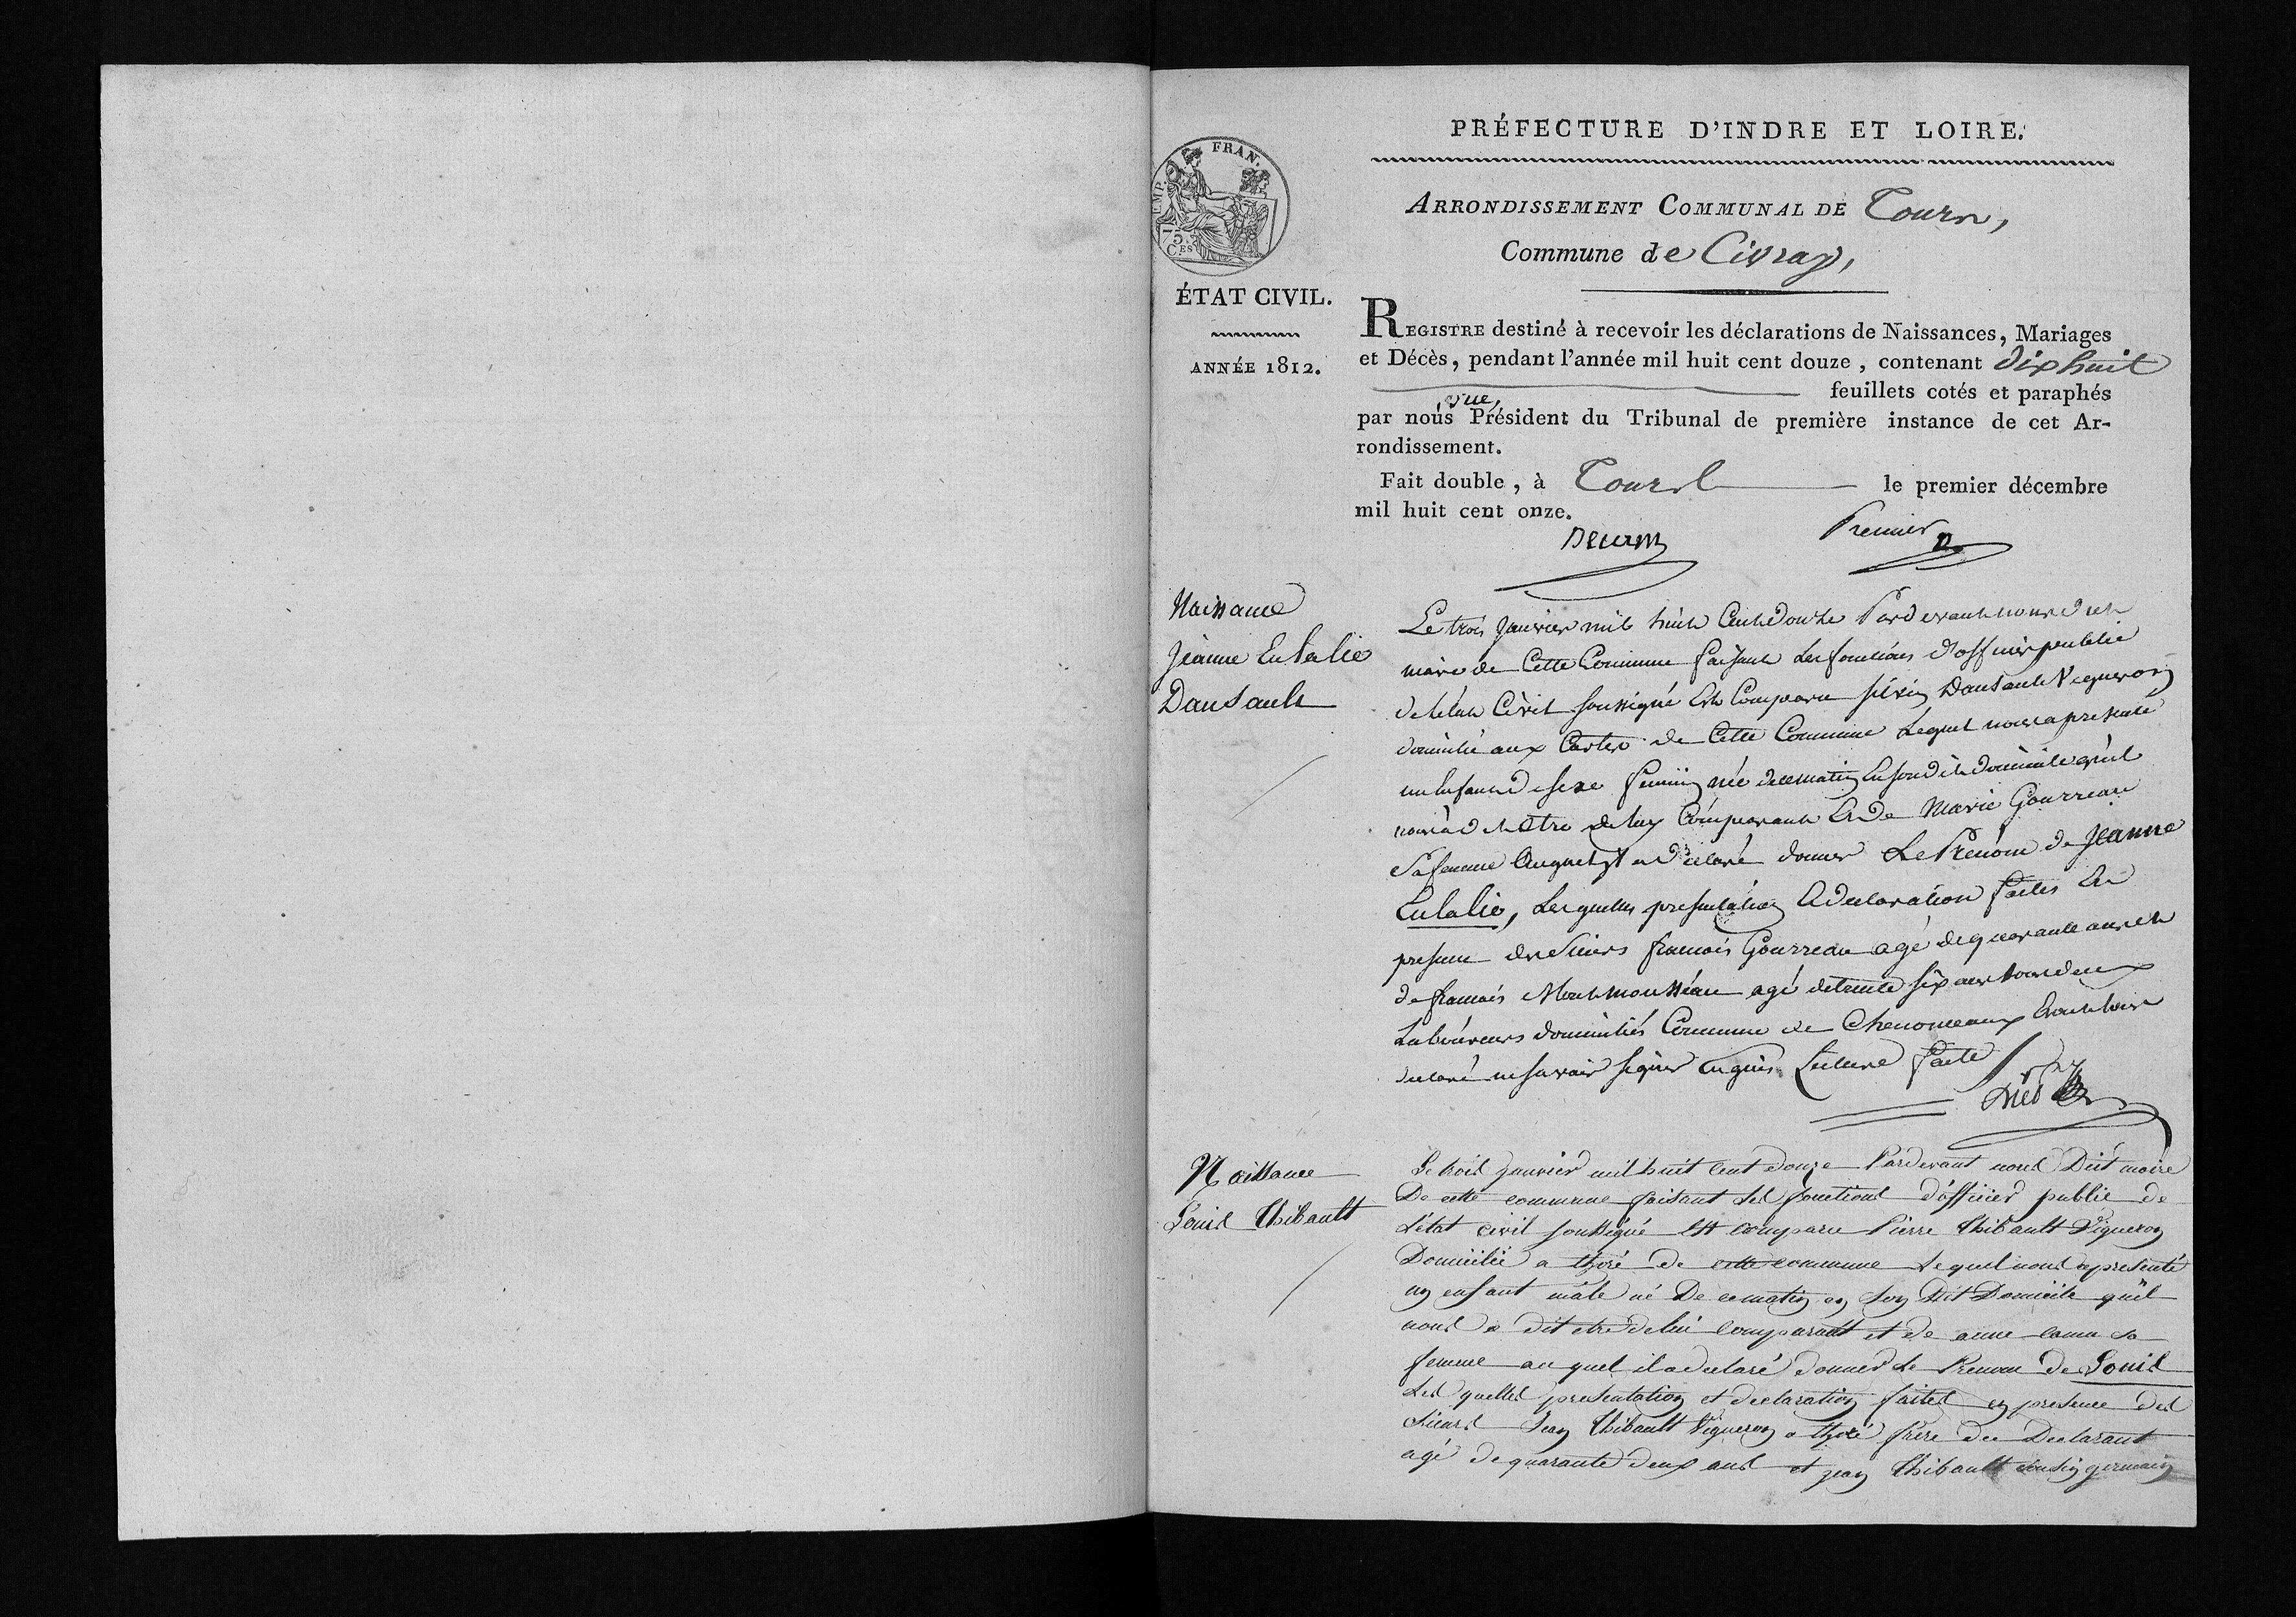 PRÉFECTURE D'INDRE ET LOIRE.
EMP. FRAN.
75 CES
ARRONDISSEMENT COMMUNAL DE Tours,
Commune de Civray,
ÉTAT CIVIL.
ANNÉE 1812.
REGISTRE destiné à recevoir les déclarations de Naissances, Mariages
et Décès, pendant l'année mil huit cent douze, contenant dix huit
feuillets cotés et paraphés
par nous Président du Tribunal de première instance de cet Ar-
rondissement.
Fait double, à Tours le premier décembre
mil huit cent onze.
Premier
Naissance
Jeanne Eulalie
Dansault
Le trois Janvier mil huit Cent douze Pardevant nous
maire de Cette Commune faisant Les fonctions d'officier public
de létat Civil soussigné Est Comparu silvin Dansault Vigneron
domicilié aux de Cette Commune Lequel nous a presenté
un Enfant de sexe feminin née de ce matin En son dit domicile qu'il
nous a dit Etre de luy Comparant Et de Marie Gourreau
Sa femme Auquel il a déclaré donner Le Prénom de Jeanne
Eulalie, Lesquelles presentation & declaration faites En
presence des Sieurs francois Gourreau agé de quarante ans et
de francois Montmousseau agé de trente six ans tous deux
Laboureurs domiciliés Commune de Chenonceaux Et ont
declaré ne savoir signer Lecture faite
Naissance
Louis Thibault
Le trois Janvier mil huit Cent douze Pardevant nous maire
De cette commune faisant les fonctions d'officier public de
L'état civil soussigné Est comparu Pierre Thibault Vigneron
Domicilié a thoré de cette commune Lequel nous a presenté
un enfant mâle né De ce matin en son Dit Domicile qu'il
nous a dit etre de lui comparant et de anne sa
femme au quel il a declaré donner le Prenom de Louis
Les quelles presentation et declaration faites en presence des
Sieurs Jean Thibault Vigneron a thoré frere du Declarant
agé de quarante deux ans et jean Thibault cousin germain